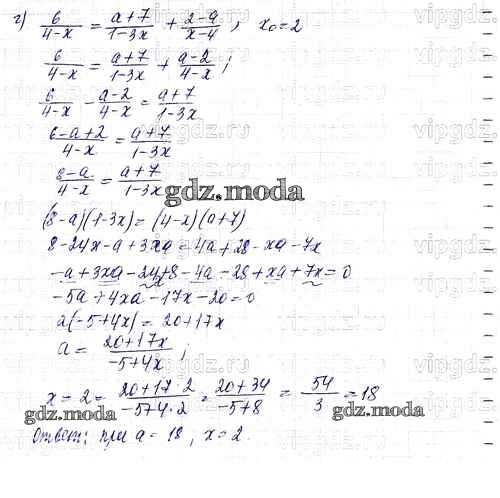 г) 6/(4-x) = (a+7)/(1-3x) + (2-a)/(x-4) ; x₀=2
6/(4-x) = (a+7)/(1-3x) + (a-2)/(4-x) ;
6/(4-x) - (a-2)/(4-x) = (a+7)/(1-3x)
(6-a+2)/(4-x) = (a+7)/(1-3x)
(8-a)/(4-x) = (a+7)/(1-3x)
gdz.moda
(8-a)(1-3x) = (4-x)(a+7)
8-24x-a+3xa = 4a+28-xa-7x
-a+3xa-24x+8-4a-28+xa+7x=0
-5a+4xa-17x-20=0
a(-5+4x) = 20+17x
a = (20+17x)/(-5+4x) ;
x = 2 = (20+17·2)/(-5+4·2) = (20+34)/(-5+8) = 54/3 = 18
gdz.moda gdz.moda
Ответ: при a = 18, x = 2.
vipgdz.ru
vipgdz.ru
vipgdz.ru
vipgdz.ru
vipgdz.ru
vipgdz.ru
vipgdz.ru
vipgdz.ru